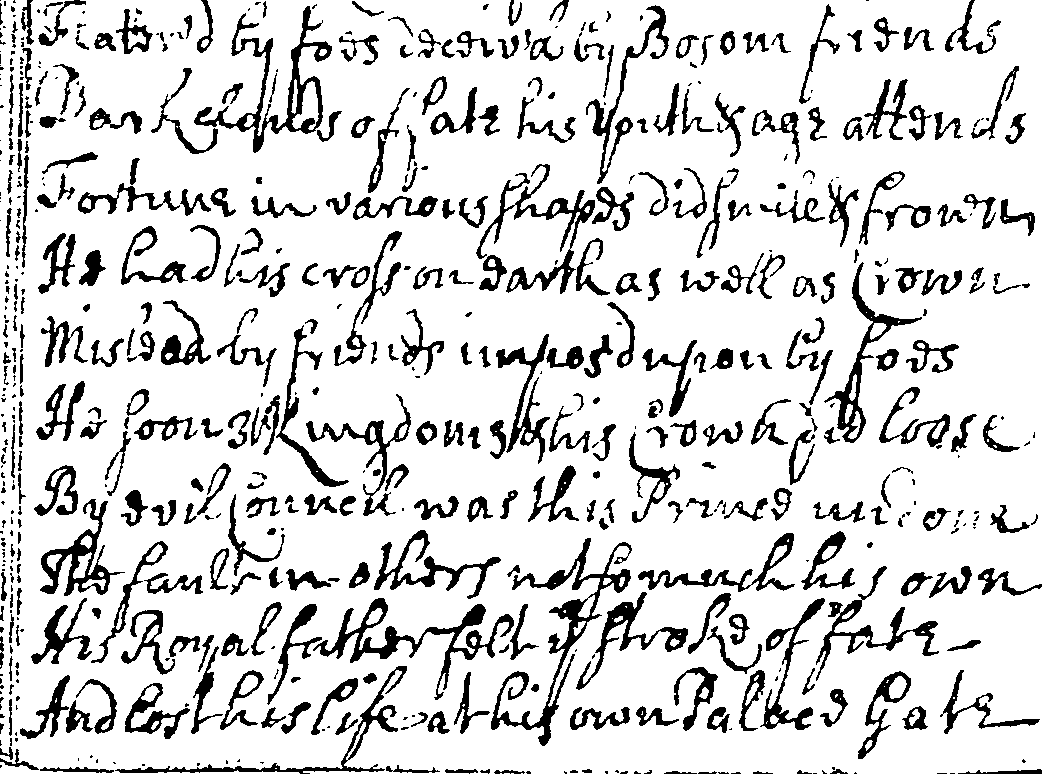 Flater'd by foes deceiv'd by Bosom friends
Dark clouds of fate his youth & age attends
Fortune in various shapes did smile & frown
He had his cross on earth as well as Crown
Mislead by friends impos'd upon by foes
He soon 3 Kingdoms & his Crown did loose
By evil Councell was this Prince undone
The fault in others not so much his own
His Royal father felt ye stroke of fate
And lost his life at his own Palace Gate